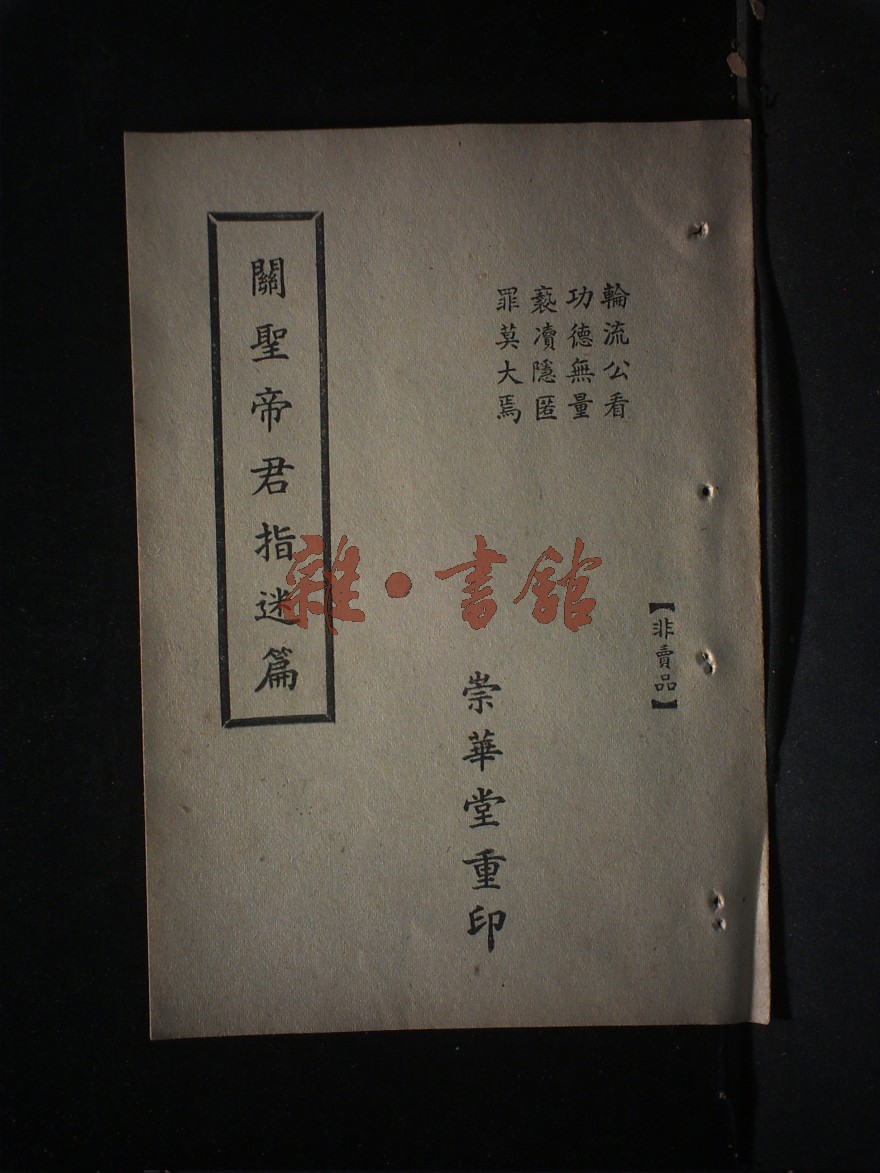 【非賣品】
輪流公看
功德無量
褻凟隱匿
罪莫大焉
崇華堂重印
關聖帝君指迷篇
雜·書館